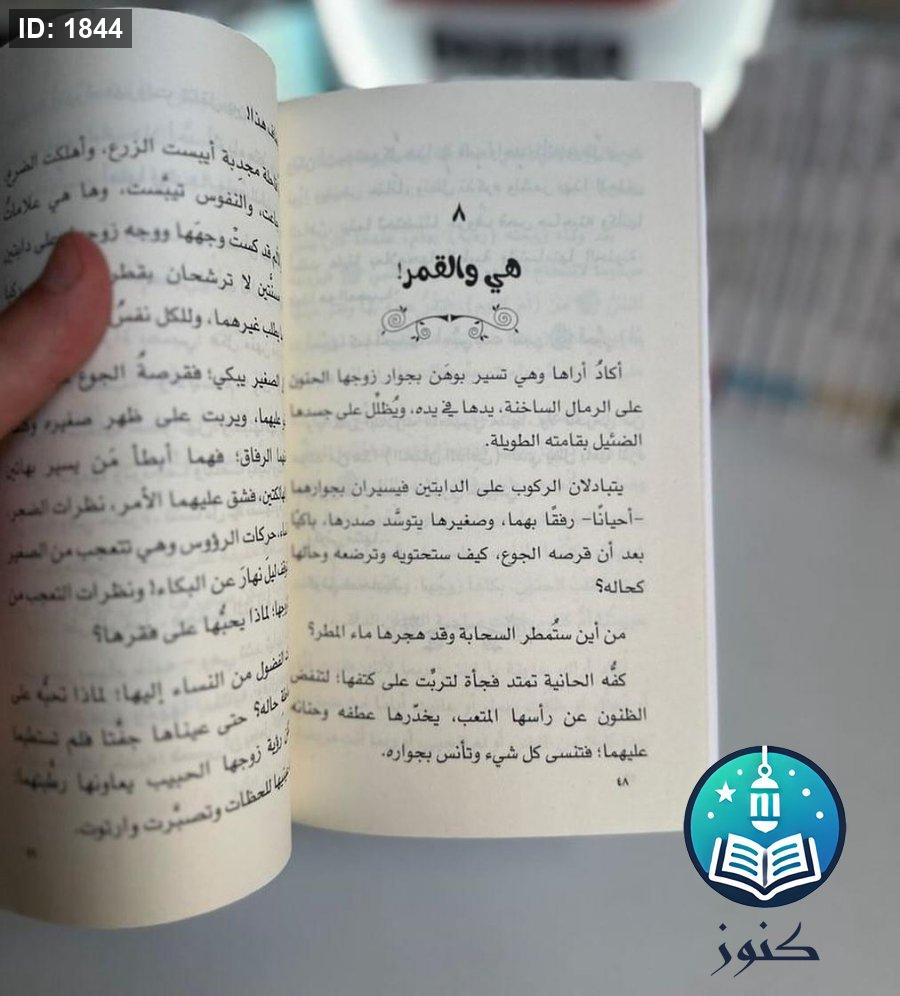 ID: 1844
٨
هي والقمر!
أكادُ أراها وهي تسير بوهَن بجوار زوجها الحنون
على الرمال الساخنة، يدها في يده، ويُظلِّل على جسدها
الضئيل بقامته الطويلة.
يتبادلان الركوب على الدابتين فيسيران بجوارهما
-أحيانًا- رفقًا بهما، وصغيرها يتوسَّد صدرها، باكيًا
بعد أن قرصه الجوع، كيف ستحتويه وترضعه وحالها
كحاله؟
من أين ستُمطر السحابة وقد هجرها ماء المطر؟
كفُّه الحانية تمتد فجأة لتربِّت على كتفها؛ لتنفض
الظنون عن رأسها المتعب، يخدّرها عطفه وحنانه
عليهما؛ فتنسى كل شيء وتأنس بجواره.
٤٨
هذا!
مجدِبة أيبست الزرع، وأهلكت الضرع
والنفوس تيبَّست، وها هي علاماتُ
قد كستْ وجهَها ووجه
لا ترشحان
يطلب غيرهما، وللكل نفسٌ
الصغير يبكي؛ فقرصةُ الجوع
عليهما، ويربت على ظهر صغيره
الرفاق؛ فهما أبطأ مَن يسير بهاتين
فشق عليهما الأمر، نظرات الضجر
حركات الرؤوس وهي تتعجب من الصغير
ليلَ نهارَ عن البكاء! ونظرات التعجب من
لماذا يحبُّها على فقرها؟
الفضول من النساء إليها؛ لماذا تحبُّه على
حاله؟ حتى عيناها جفَّتا فلم تستطيعا
رؤية زوجها الحبيب يعاونها
للحظات وتصبَّرت وارتوت.
كنوز